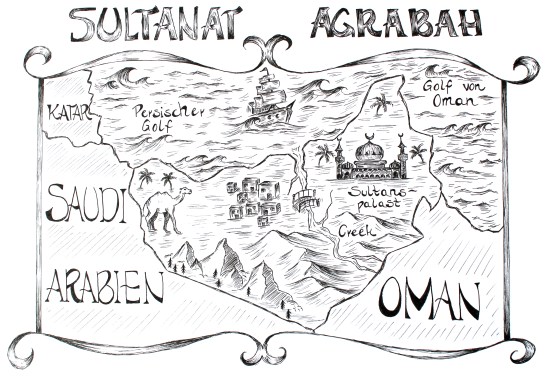 SULTANAT AGRABAH
KATAR
Persischer
Golf
Golf von
Oman
SAUDI
ARABIEN
Sultans-
palast
Creek
OMAN